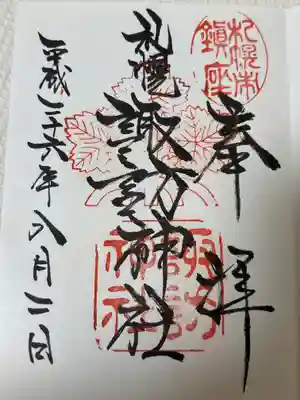 奉拝
札幌市鎮座
札幌諏訪神社
平成二十六年八月二日